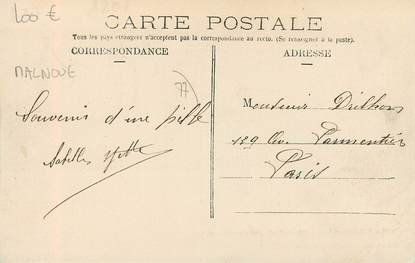 100 €
CARTE POSTALE
Tous les pays étrangers n'acceptent pas la correspondance au recto. (Se renseigner à la poste).
CORRESPONDANCE
ADRESSE
MALNOUE
77
Souvenir d'une
Monsieur
129 Av. Parmentier
Paris